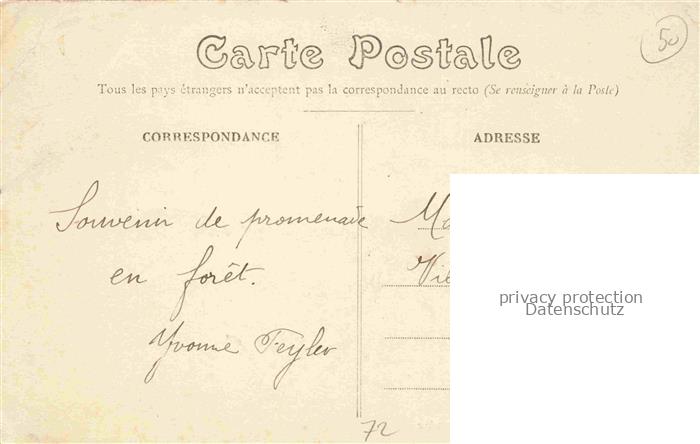 50
Carte Postale
Tous les pays étrangers n'acceptent pas la correspondance au recto (Se renseigner à la Poste)
CORRESPONDANCE
ADRESSE
Souvenir de promenade
en forêt.
Yvonne Feyler
privacy protection
Datenschutz
72